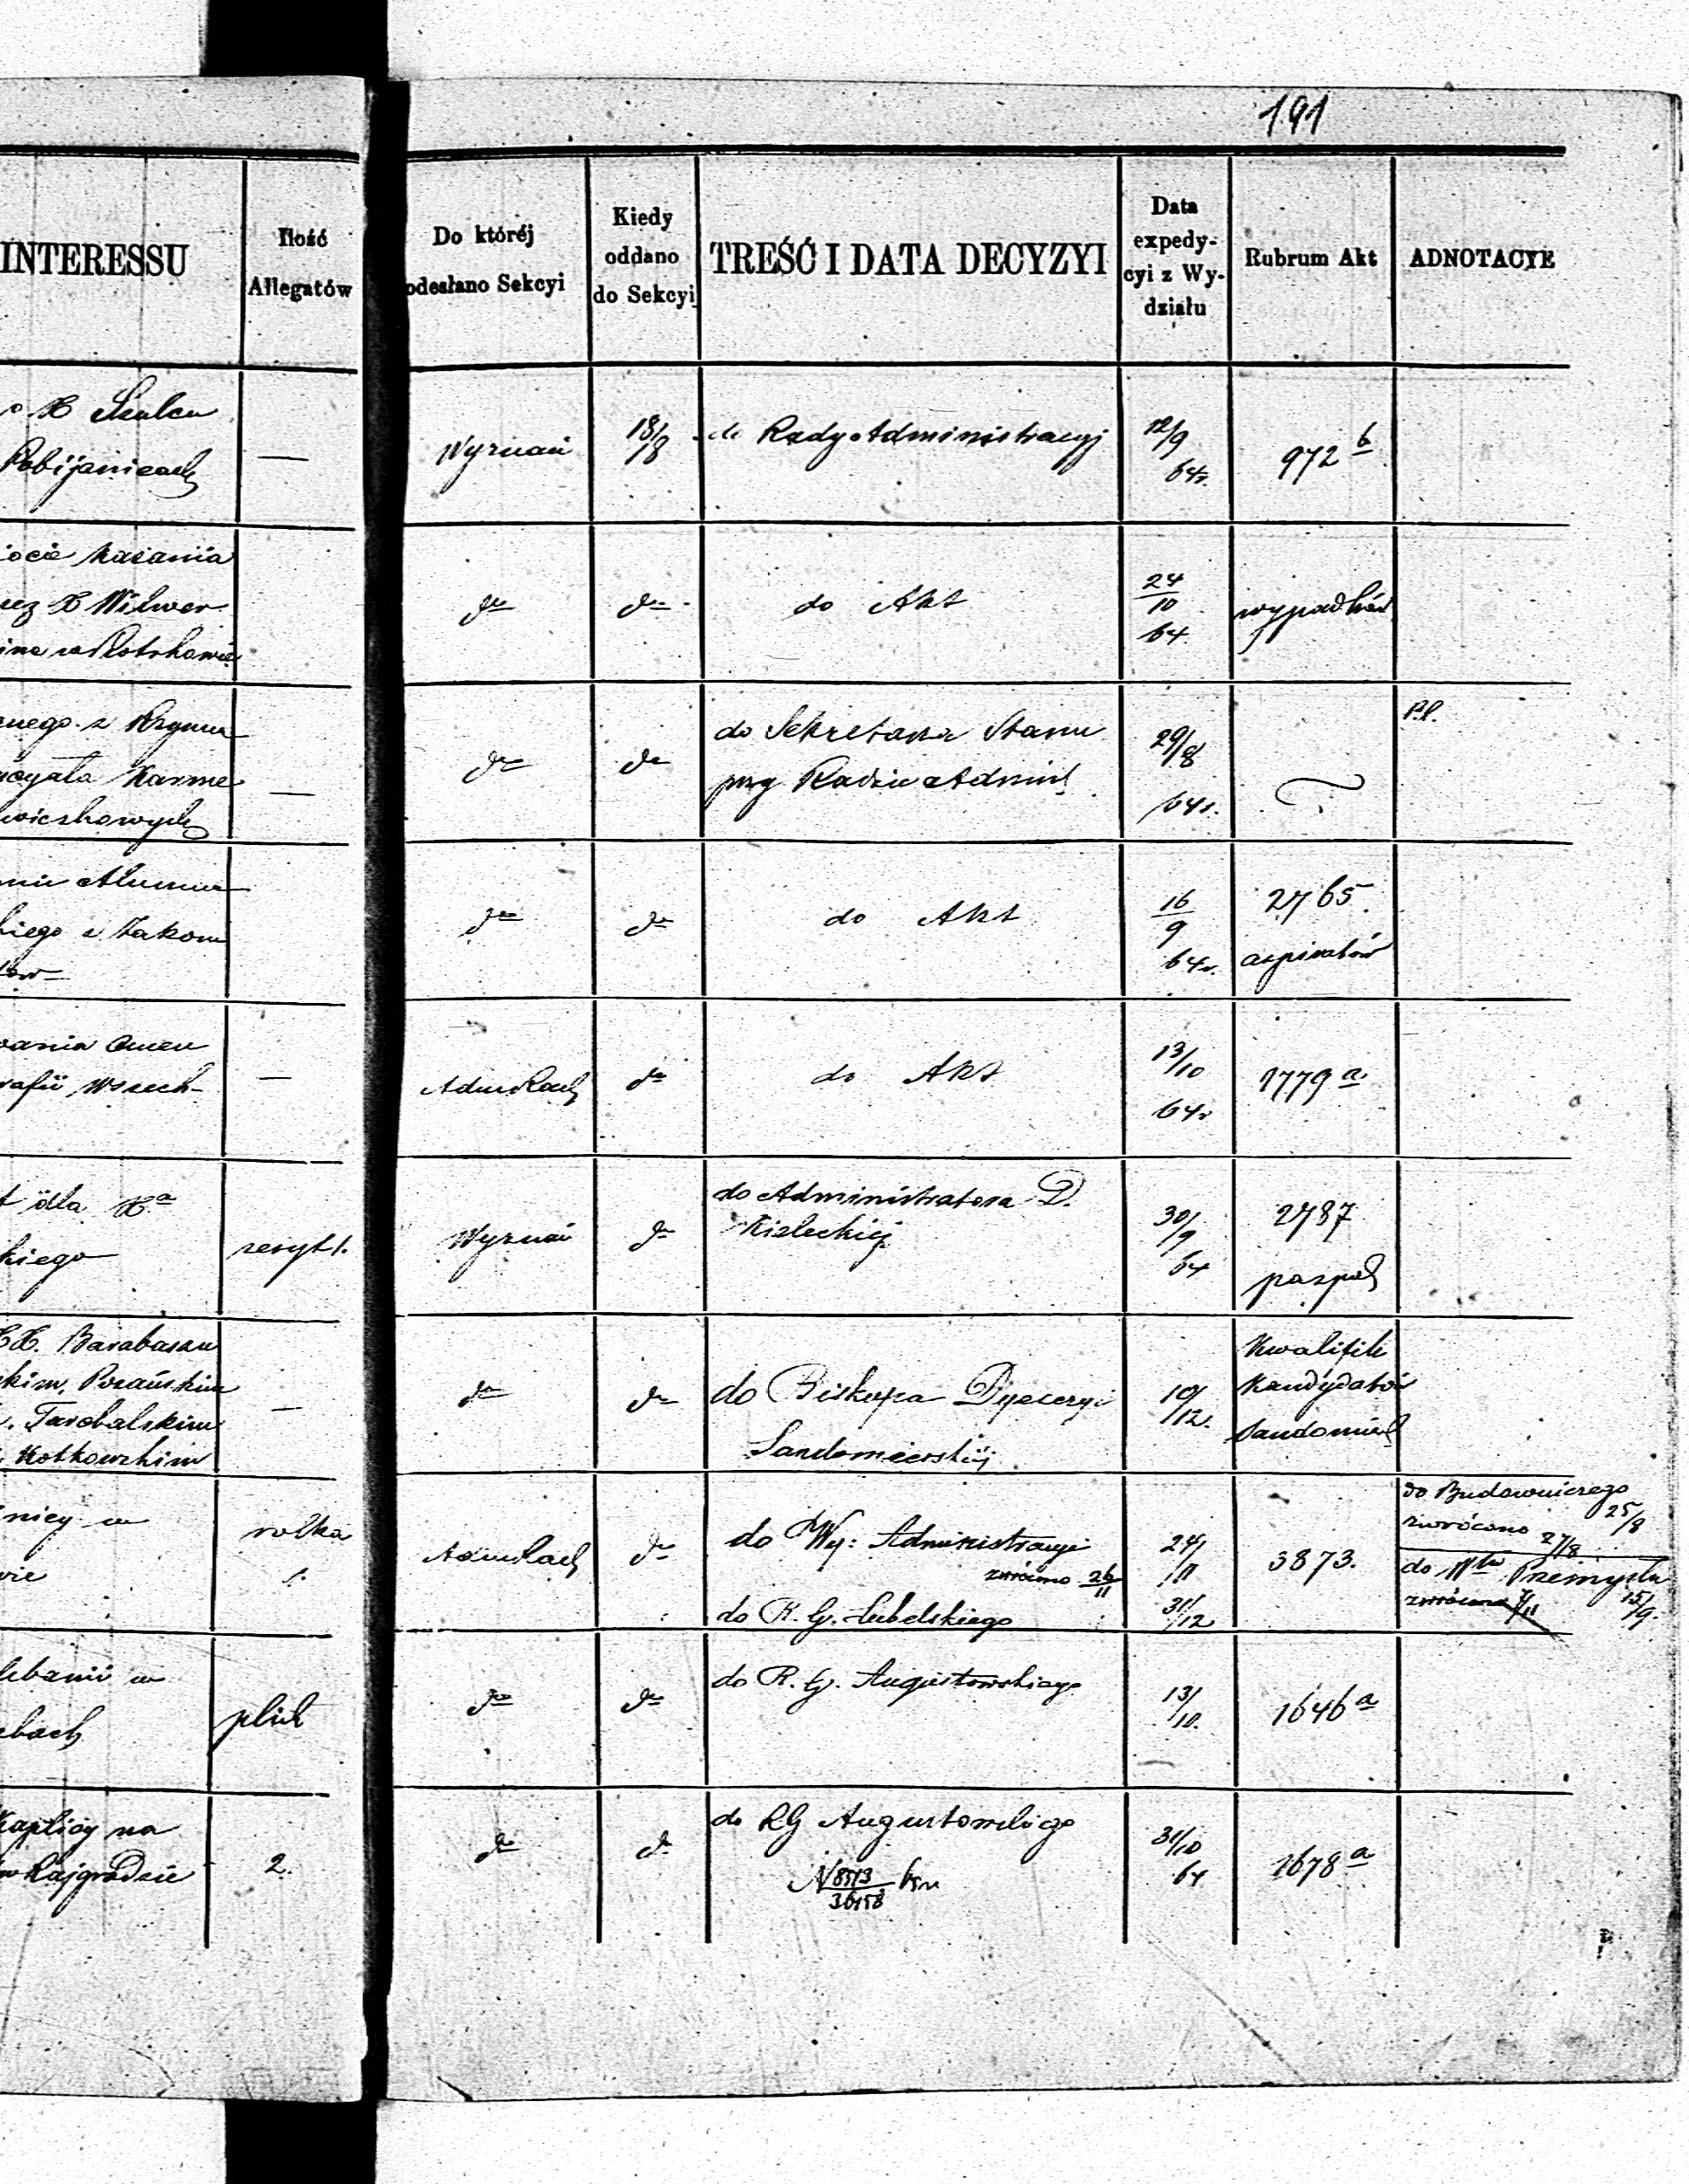 191
INTERESSU
Ilość
Allegatów
Do któréj
odesłano Sekcyi
Kiedy
oddano
do Sekcyi
TREŚĆ I DATA DECYZYI
Data
expedy-
cyi z Wy-
działu
Rubrum Akt
ADNOTACYE
o X Szulcu
Pabijanicach
—
Wyznań
18/8
do Rady Administracyj
12/9
64r.
972 b
kazania
X Wilwer
w Piotrkowie
do
do
do Akt
24/10
64.
wypadków
z Rzymu
Karme
—
do
do
do Sekretarza Stanu
przy Radzie Admin
29/8
64r.
Alumna
kiego z Zakonu
tow
do
do
do Akt
16/9
64r.
2765.
aspirantów
wania Cmen
rafii Wszech-
—
Adm Rach
do
do Akt
13/10
64r
1779 a
dla Xa
kiego
zeszyt 1.
Wyznań
do
do Administratora D.
Kieleckiej
30/9
64
2787
paszpor
XX. Barabaszu
skim, Pozańskim
Tarobalskim
Kotkowskim
—
do
do
do Biskupa Dyecezyi
Sandomierskiej
10/12.
Kwalifik
Kandydatów
Sandomier
nicy w
wie
rolka
1.
Adm Rach
do
do Wy: Administracyi
zwrócono 26/11
do R. G. Lubelskiego
24/11
31/12
3873.
do Budowniczego
25/8
zwrócono 27/8
do Włu Przemysłu
zwrócono 7/11
15/9.
lebanii w
ebach
plik
do
do
do R. G. Augustowskiego
13/10.
1646 a
Kaplicy na
w Rajgrodzie
2.
do
do
do RG Augustowskiego
N 8513/36158
31/10
64
1678 a